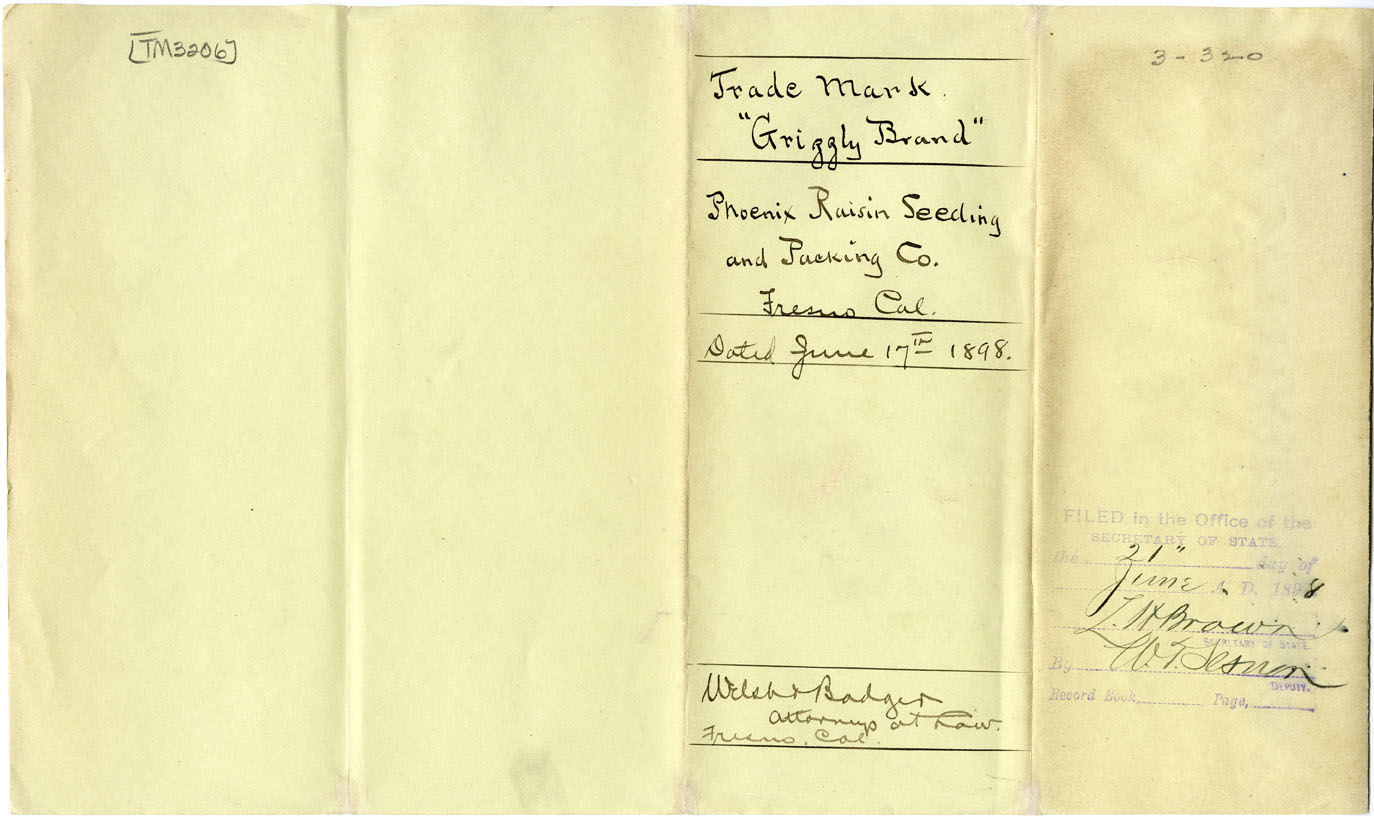 [TM3206]
Trade Mark.
"Grizzly Brand"
Phoenix Raisin Seeding
and Packing Co.
Fresno Cal.
Dated June 17TH 1898.
Attorneys at Law.
Fresno, Cal.
3-320
FILED in the Office of the
SECRETARY OF STATE.
the 21" day of
June A. D. 1898
L. H. Brown
SECRETARY OF STATE.
By W. T.
DEPUTY.
Record Book, Page,